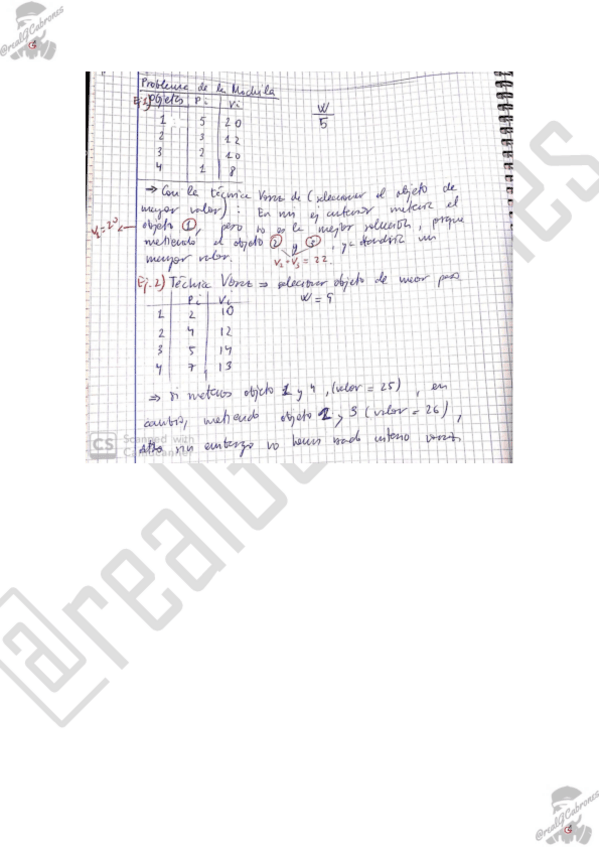 @realGCabrones
Problema de la Mochila
Ej.1) Objetos Pi Vi
W
5
1 5 20
2 3 12
3 2 10
4 1 8
⇒ Con la técnica Voraz de (seleccionar el objeto de
mayor valor): En mi ej anterior metería el
V1=20 ← objeto 1, pero no es la mejor solución, porque
metiendo el objeto 2 y 3, ya tendría un
mayor valor. V2+V3 = 22.
Ej.2) Técnica Voraz ⇒ seleccionar objeto de menor peso
Pi Vi W = 9
1 2 10
2 4 12
3 5 14
4 7 13
⇒ si metemos objeto 1 y 4, (valor = 25), en
cambio, metiendo objeto 2 y 3 (valor = 26),
sin embargo no hemos usado voraz
CS Scanned with
CamScanner
@realGCabrones